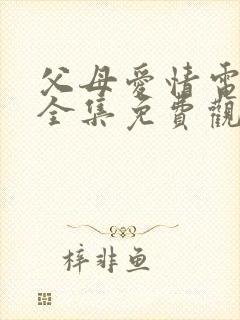 父母愛情電
全集免費觀
梓非魚